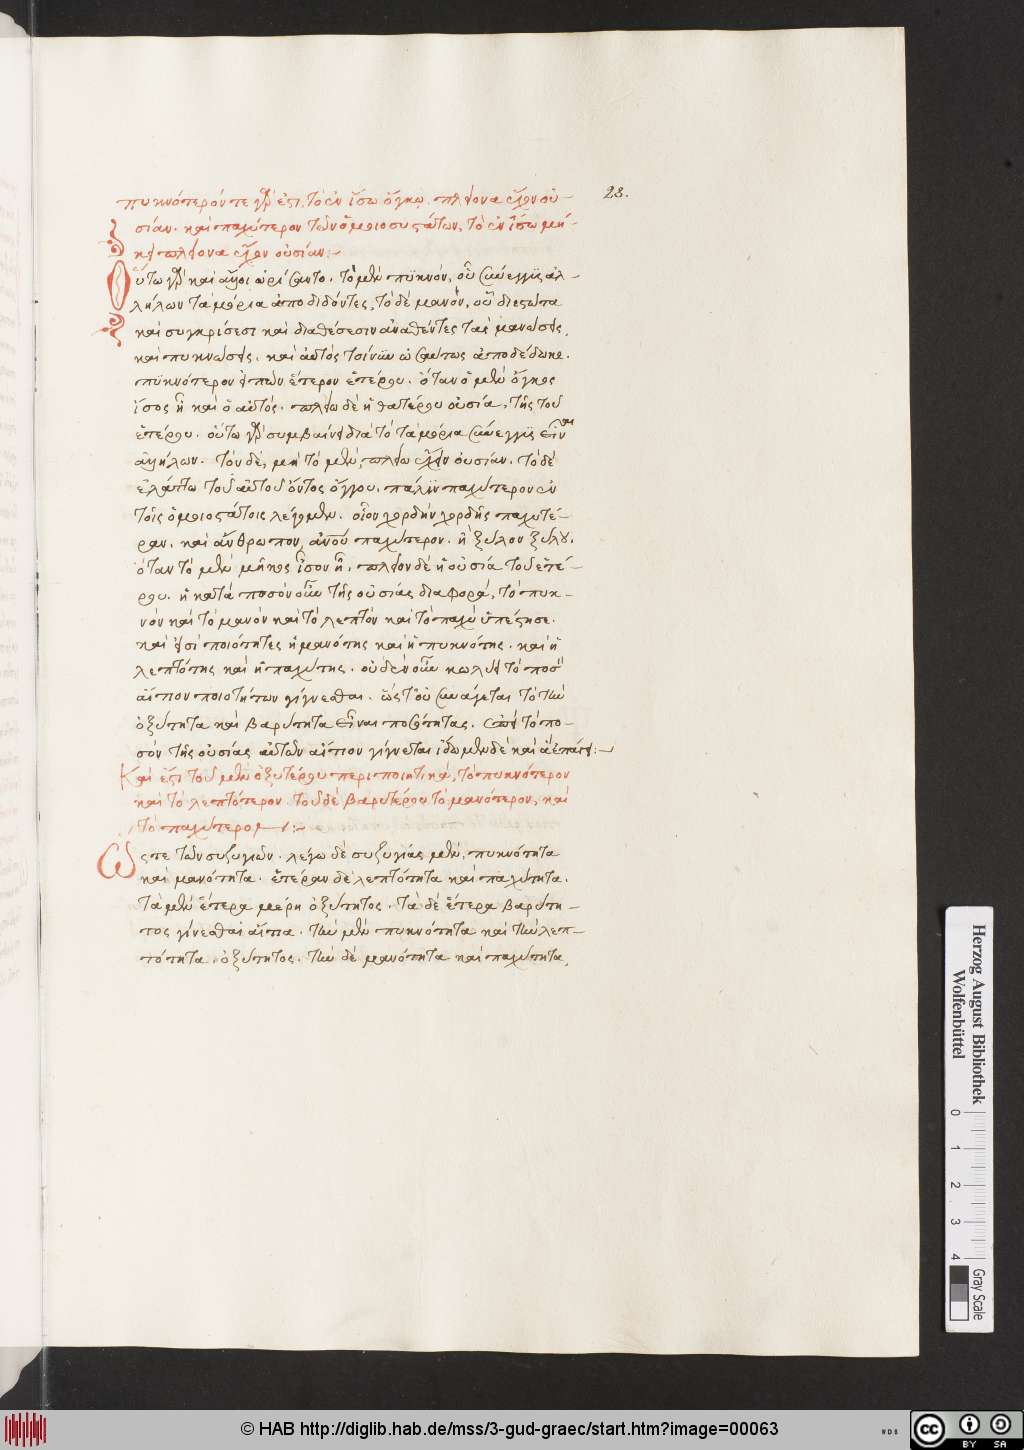 28.
πυκνότερόν τε γὰρ ἐστι, τὸ ἐν ἴσῳ ὄγκῳ, πλείονα ἔχον οὐ-
σίαν. καὶ παχύτερον τῶν ὁμοιοσυστάτων, τὸ ἐν ἴσῳ μή-
κει πλείονα ἔχον οὐσίαν:
Οὕτω γὰρ καὶ ἄλλοι ὡρίσαντο. τὸ μὲν πυκνόν, οὗ σύνεγγυς ἀλ-
λήλων τὰ μόρια ἀποδιδόντες, τὸ δὲ μανόν, οὗ διεστῶτα
καὶ συγκρίσεσι καὶ διαθέσεσιν ἀναθέντες τὰς μανώσεις,
καὶ πυκνώσεις. καὶ αὐτὸς τοίνυν ὡσαύτως ἀποδέδωκε.
πυκνότερον εἰπὼν ἕτερον ἑτέρου. ὅταν ὁ μὲν ὄγκος
ἴσος ἦ καὶ ὁ αὐτός. πλείω δὲ ἡ θατέρου οὐσία, τῆς τοῦ
ἑτέρου. οὕτω γὰρ συμβαίνει διὰ τὸ τὰ μόρια σύνεγγυς εἶναι
ἀλλήλων. τὸν δὲ, μὴ τὸ μὲν, πλείω ἔχειν οὐσίαν. τὸ δὲ
ἐλάττω τοῦ αὐτοῦ ὄντος ὄγκου. πάλιν παχύτερον ἐν
τοῖς ὁμοιοστάτοις λέγομεν. οἷον χορδὴν χορδῆς παχυτέ-
ραν. καὶ ἄνθρωπον ἀνου παχύτερον. ἢ ξύλον ξύλου.
ὅταν τὸ μὲν μῆκος ἴσον ἦ, πλείον δὲ ἡ οὐσία τοῦ ἑτέ-
ρου. ἡ κατὰ ποσὸν οὖν τῆς οὐσίας διαφορά, τὸ πυκ-
νὸν καὶ τὸ μανὸν καὶ τὸ λεπτὸν καὶ τὸ παχὺ ὑπέστησε.
καὶ εἰσὶ ποιότητες ἡ μανότης καὶ ἡ πυκνότης. καὶ ἡ
λεπτότης καὶ ἡ παχύτης. οὐδὲν οὖν κωλύει τὸ ποσὸν
αἴτιον ποιοτήτων γίγνεσθαι. ὥστ' οὐ συνάγεται τὸ τὴν
ὀξύτητα καὶ βαρύτητα εἶναι ποσότητας. ἐπεὶ τὸ πο-
σὸν τῆς οὐσίας αὐτῶν αἴτιον γίνεται ἴδωμεν δὲ καὶ ἃ ἐπάγει:
Καὶ ἔστι τοῦ μὲν ὀξυτέρου περιποιητικά, τὸ πυκνότερον
καὶ τὸ λεπτότερον τοῦ δὲ βαρυτέρου τὸ μανότερον, καὶ
τὸ παχύτερον:
Ὥστε τῶν συζυγιῶν. λέγω δὲ συζυγίας μὲν, πυκνότητα
καὶ μανότητα. ἑτέραν δὲ λεπτότητα καὶ παχύτητα.
τὰ μὲν ἕτερα μέρη ὀξύτητος. τὰ δὲ ἕτερα βαρύτη-
τος γίνεσθαι αἴτια. τὴν μὲν πυκνότητα καὶ τὴν λεπ-
τότητα ὀξύτητος. τὴν δὲ μανότητα καὶ παχύτητα,
Herzog August Bibliothek
Wolfenbüttel
0 1 2 3 4
Gray Scale
© HAB http://diglib.hab.de/mss/3-gud-graec/start.htm?image=00063
WDB
cc BY SA